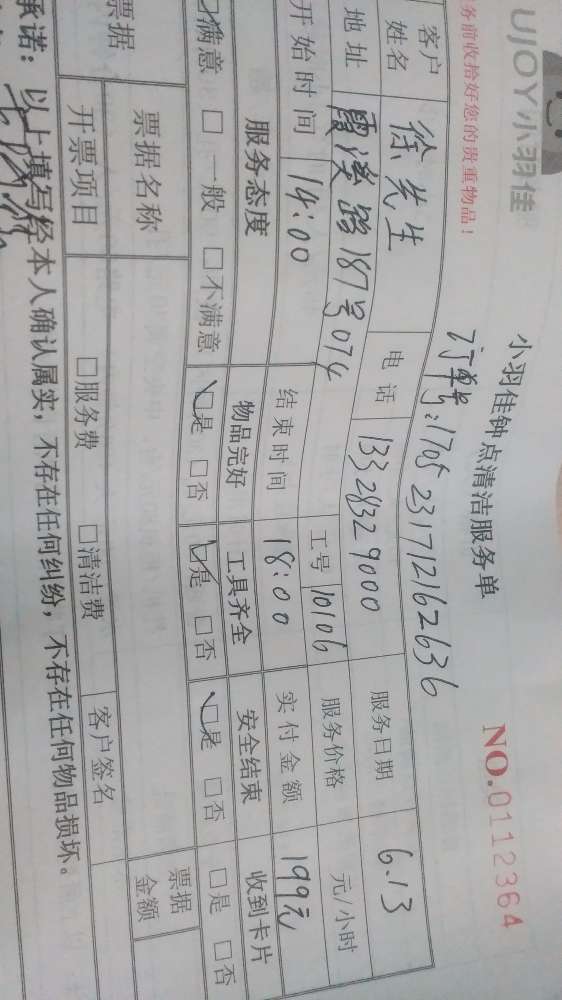 UJOY小羽佳
小羽佳钟点清洁服务单
NO.0112364
务前收拾好您的贵重物品！
订单号：1705231712162636
客户姓名 徐先生 电话 13328329000 服务日期 6.13
地址 霞溪路187号074 工号 10106 服务价格 元/小时
开始时间 14:00 结束时间 18:00 实付金额 199元
服务态度 物品完好 工具齐全 安全结束 收到卡片
满意 □一般 □不满意 □是 □否 □是 □否 □是 □否 □是 □否
票据 票据名称 票据金额
开票项目 □服务费 □清洁费 客户签名
承诺：以上填写经本人确认属实，不存在任何纠纷，不存在任何物品损坏。